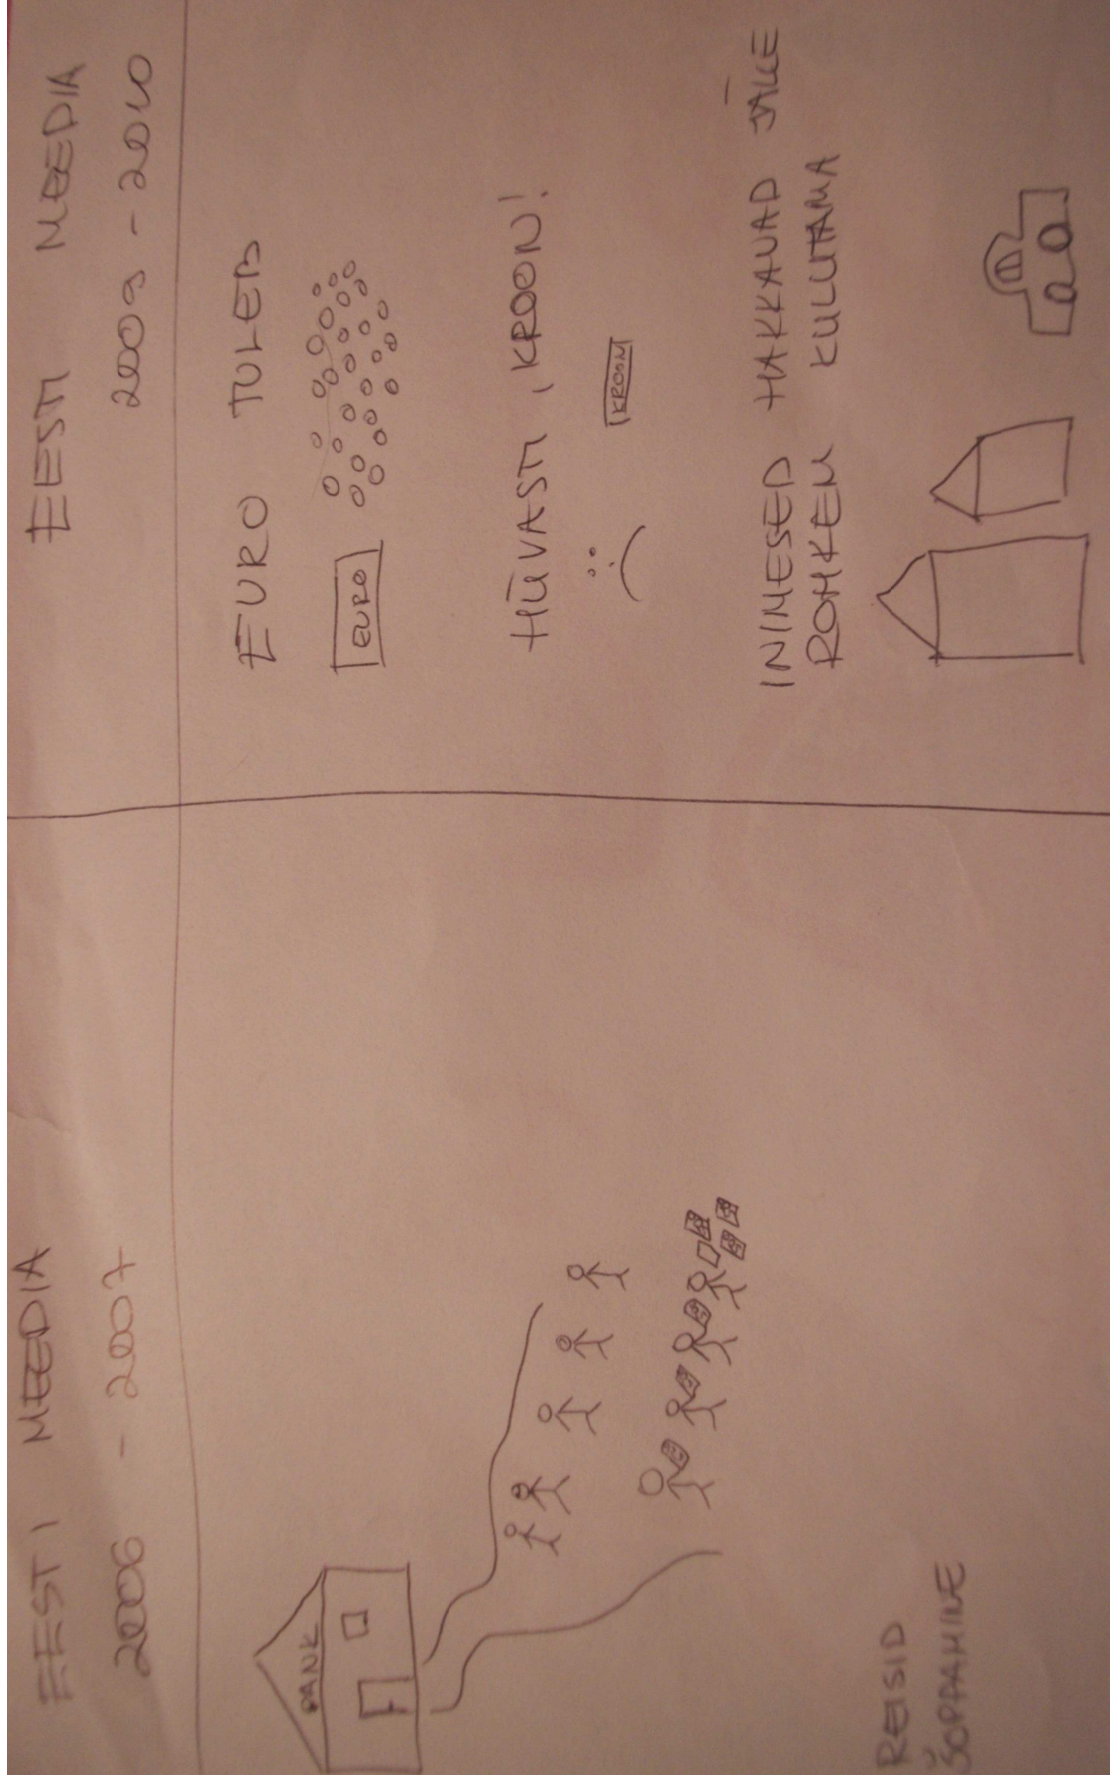 EESTI MEEDIA
2006 - 2007
PANK
REISID
ŠOPPAMINE
EESTI MEEDIA
2009 - 2010
EURO TULEB
EURO
HÜVASTI, KROON!
KROON
INIMESED HAKKAVAD JÄLLE
ROHKEM KULUTAMA